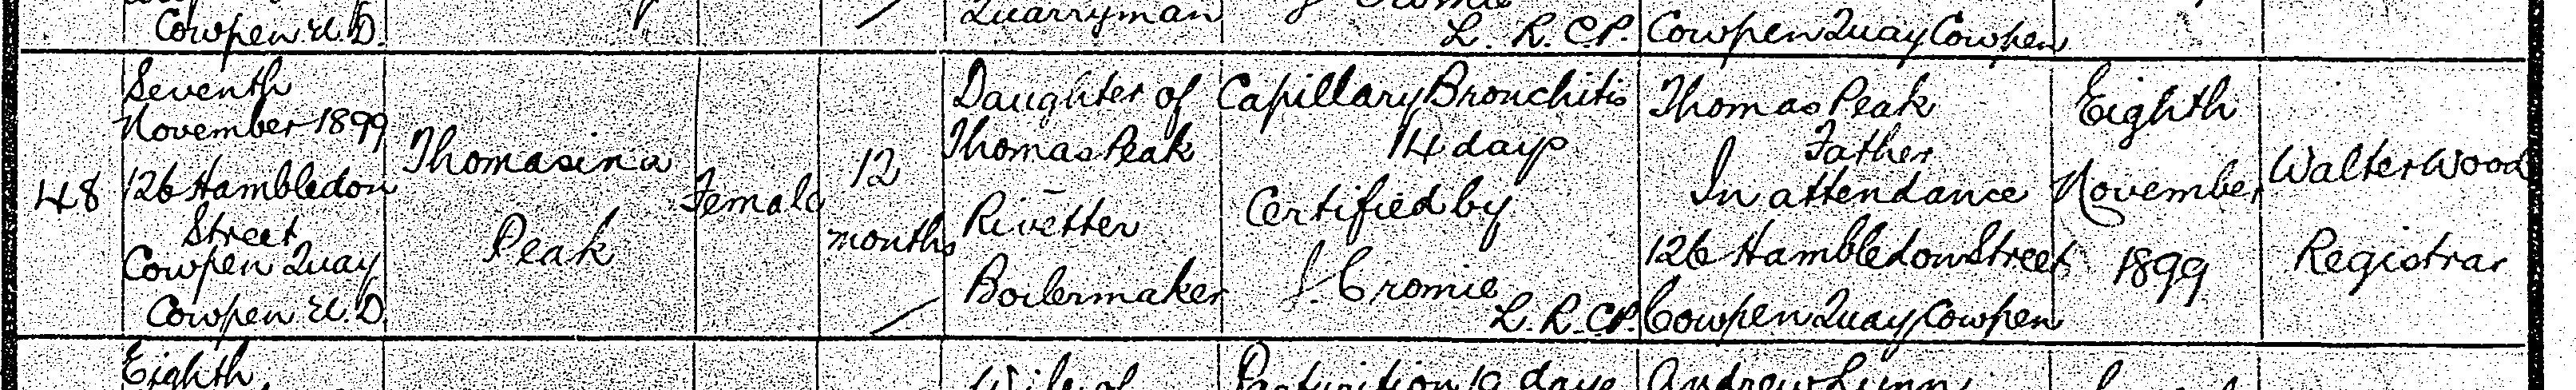 Cowpen U.D.
Quarryman
L. R. C. P.
Cowpen Quay Cowpen
48
Seventh
November 1899
126 Hambledon
Street
Cowpen Quay
Cowpen U.D.
Thomasina
Peak
Female
12
months
Daughter of
Thomas Peak
Rivetter
Boilermaker
Capillary Bronchitis
14 days
Certified by
J. Cromie
L. R. C. P.
Thomas Peak
Father
In attendance
126 Hambledon Street
Cowpen Quay Cowpen
Eighth
November
1899
Walter Wood
Registrar
Eighth
Wife of
Parturition 10 days
Andrew Lunn